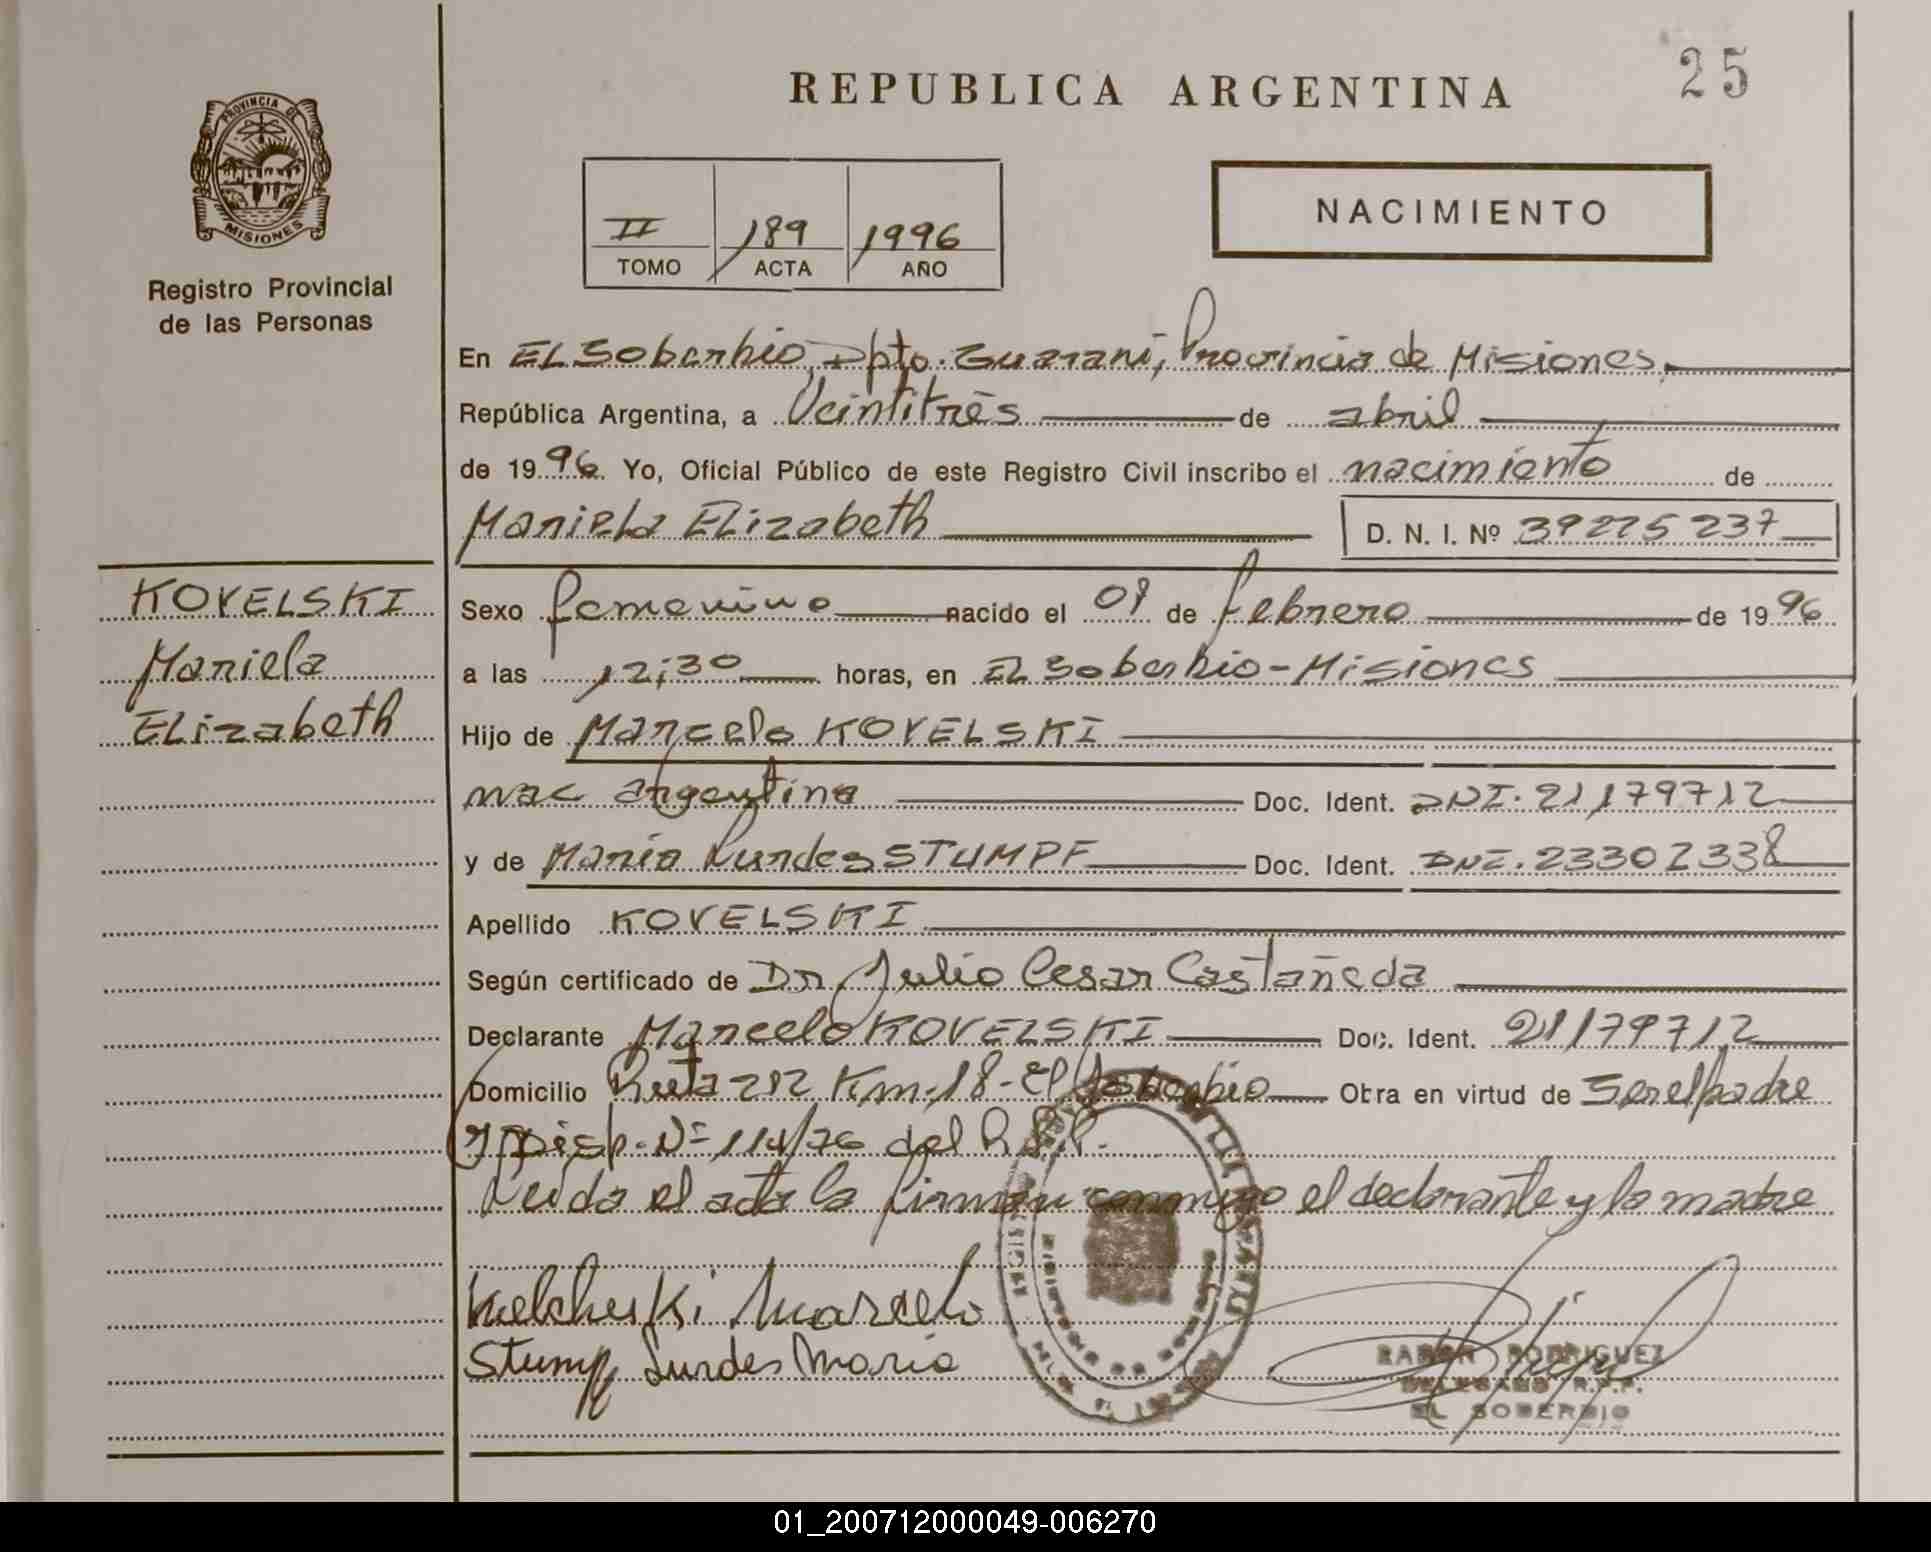 25
REPUBLICA ARGENTINA
PROVINCIA DE
MISIONES
Registro Provincial
de las Personas
II 189 1996
TOMO ACTA AÑO
NACIMIENTO
En El Soberbio, Dpto. Guarani, Provincia de Misiones
República Argentina, a Veintitrés de abril
de 1996. Yo, Oficial Público de este Registro Civil inscribo el nacimiento de
Mariela Elizabeth D. N. I. Nº 39225237
KOVELSKI
Mariela
Elizabeth
Sexo femenino nacido el 08 de febrero de 1996
a las 12:30 horas, en El Soberbio - Misiones
Hijo de Marcelo KOVELSKI
nac argentina Doc. Ident. DNI. 21179712
y de Maria Lurdes STUMPF Doc. Ident. DNI. 23302338
Apellido KOVELSKI
Según certificado de Dr Julio Cesar Castañeda
Declarante Marcelo KOVELSKI Doc. Ident. 21179712
Domicilio Ruta 212 Km-18- El Soberbio Obra en virtud de Ser el padre
y Disp. Nº 114/76 del R.P.P.
Leida el acta la firman conmigo el declarante y la madre
Marcelo
Stumpf Lurdes Maria
RAMON RODRIGUEZ
DELEGADO R.P.P.
EL SOBERBIO
01_200712000049-006270